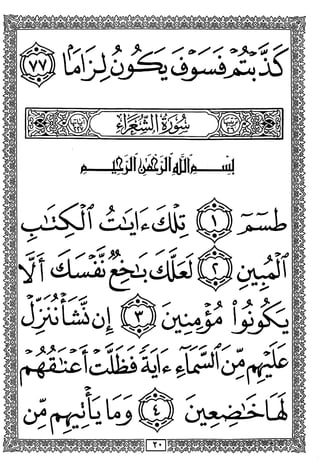 كَذَّبْتُمْ فَسَوْفَ يَكُونُ لِزَامًا ٧٧
سُورَةُ الشُّعَرَاءِ
بِسْمِ اللَّهِ الرَّحْمَٰنِ الرَّحِيمِ
طسٓمٓ ١ تِلْكَ ءَايَٰتُ ٱلْكِتَٰبِ
ٱلْمُبِينِ ٢ لَعَلَّكَ بَٰخِعٌ نَّفْسَكَ أَلَّا
يَكُونُوا۟ مُؤْمِنِينَ ٣ إِن نَّشَأْ نُنَزِّلْ
عَلَيْهِم مِّنَ ٱلسَّمَآءِ ءَايَةً فَظَلَّتْ أَعْنَٰقُهُمْ
لَهَا خَٰضِعِينَ ٤ وَمَا يَأْتِيهِم مِّن
٢٠